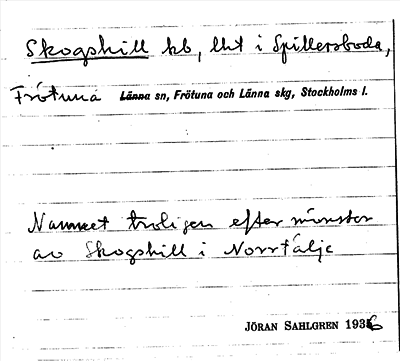 Skogshill hb, lht i Spillersboda,
Frötuna Länna sn, Frötuna och Länna skg, Stockholms l.
Namnet troligen efter mönster
av Skogshill i Norrtälje
JÖRAN SAHLGREN 1936